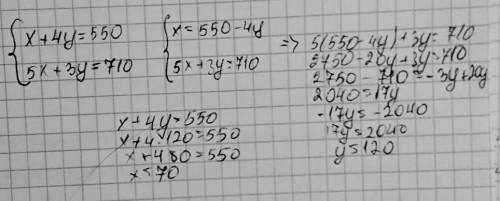 {x+4y=550
{5x+3y=710
{x=550-4y
{5x+3y=710
=> 5(550-4y)+3y=710
2750-20y+3y=710
2750-710=-3y+20y
2040=17y
-17y=-2040
17y=2040
y=120
x+4y=550
x+4·120=550
x+480=550
x=70